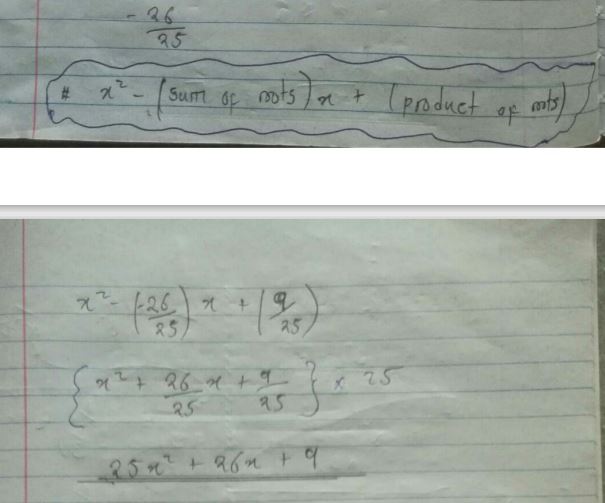 - 26/25
# x² - (sum of roots) x + (product of roots)
x² - (-26/25) x + (9/25)
{x² + 26/25 x + 9/25} × 25
25x² + 26x + 9